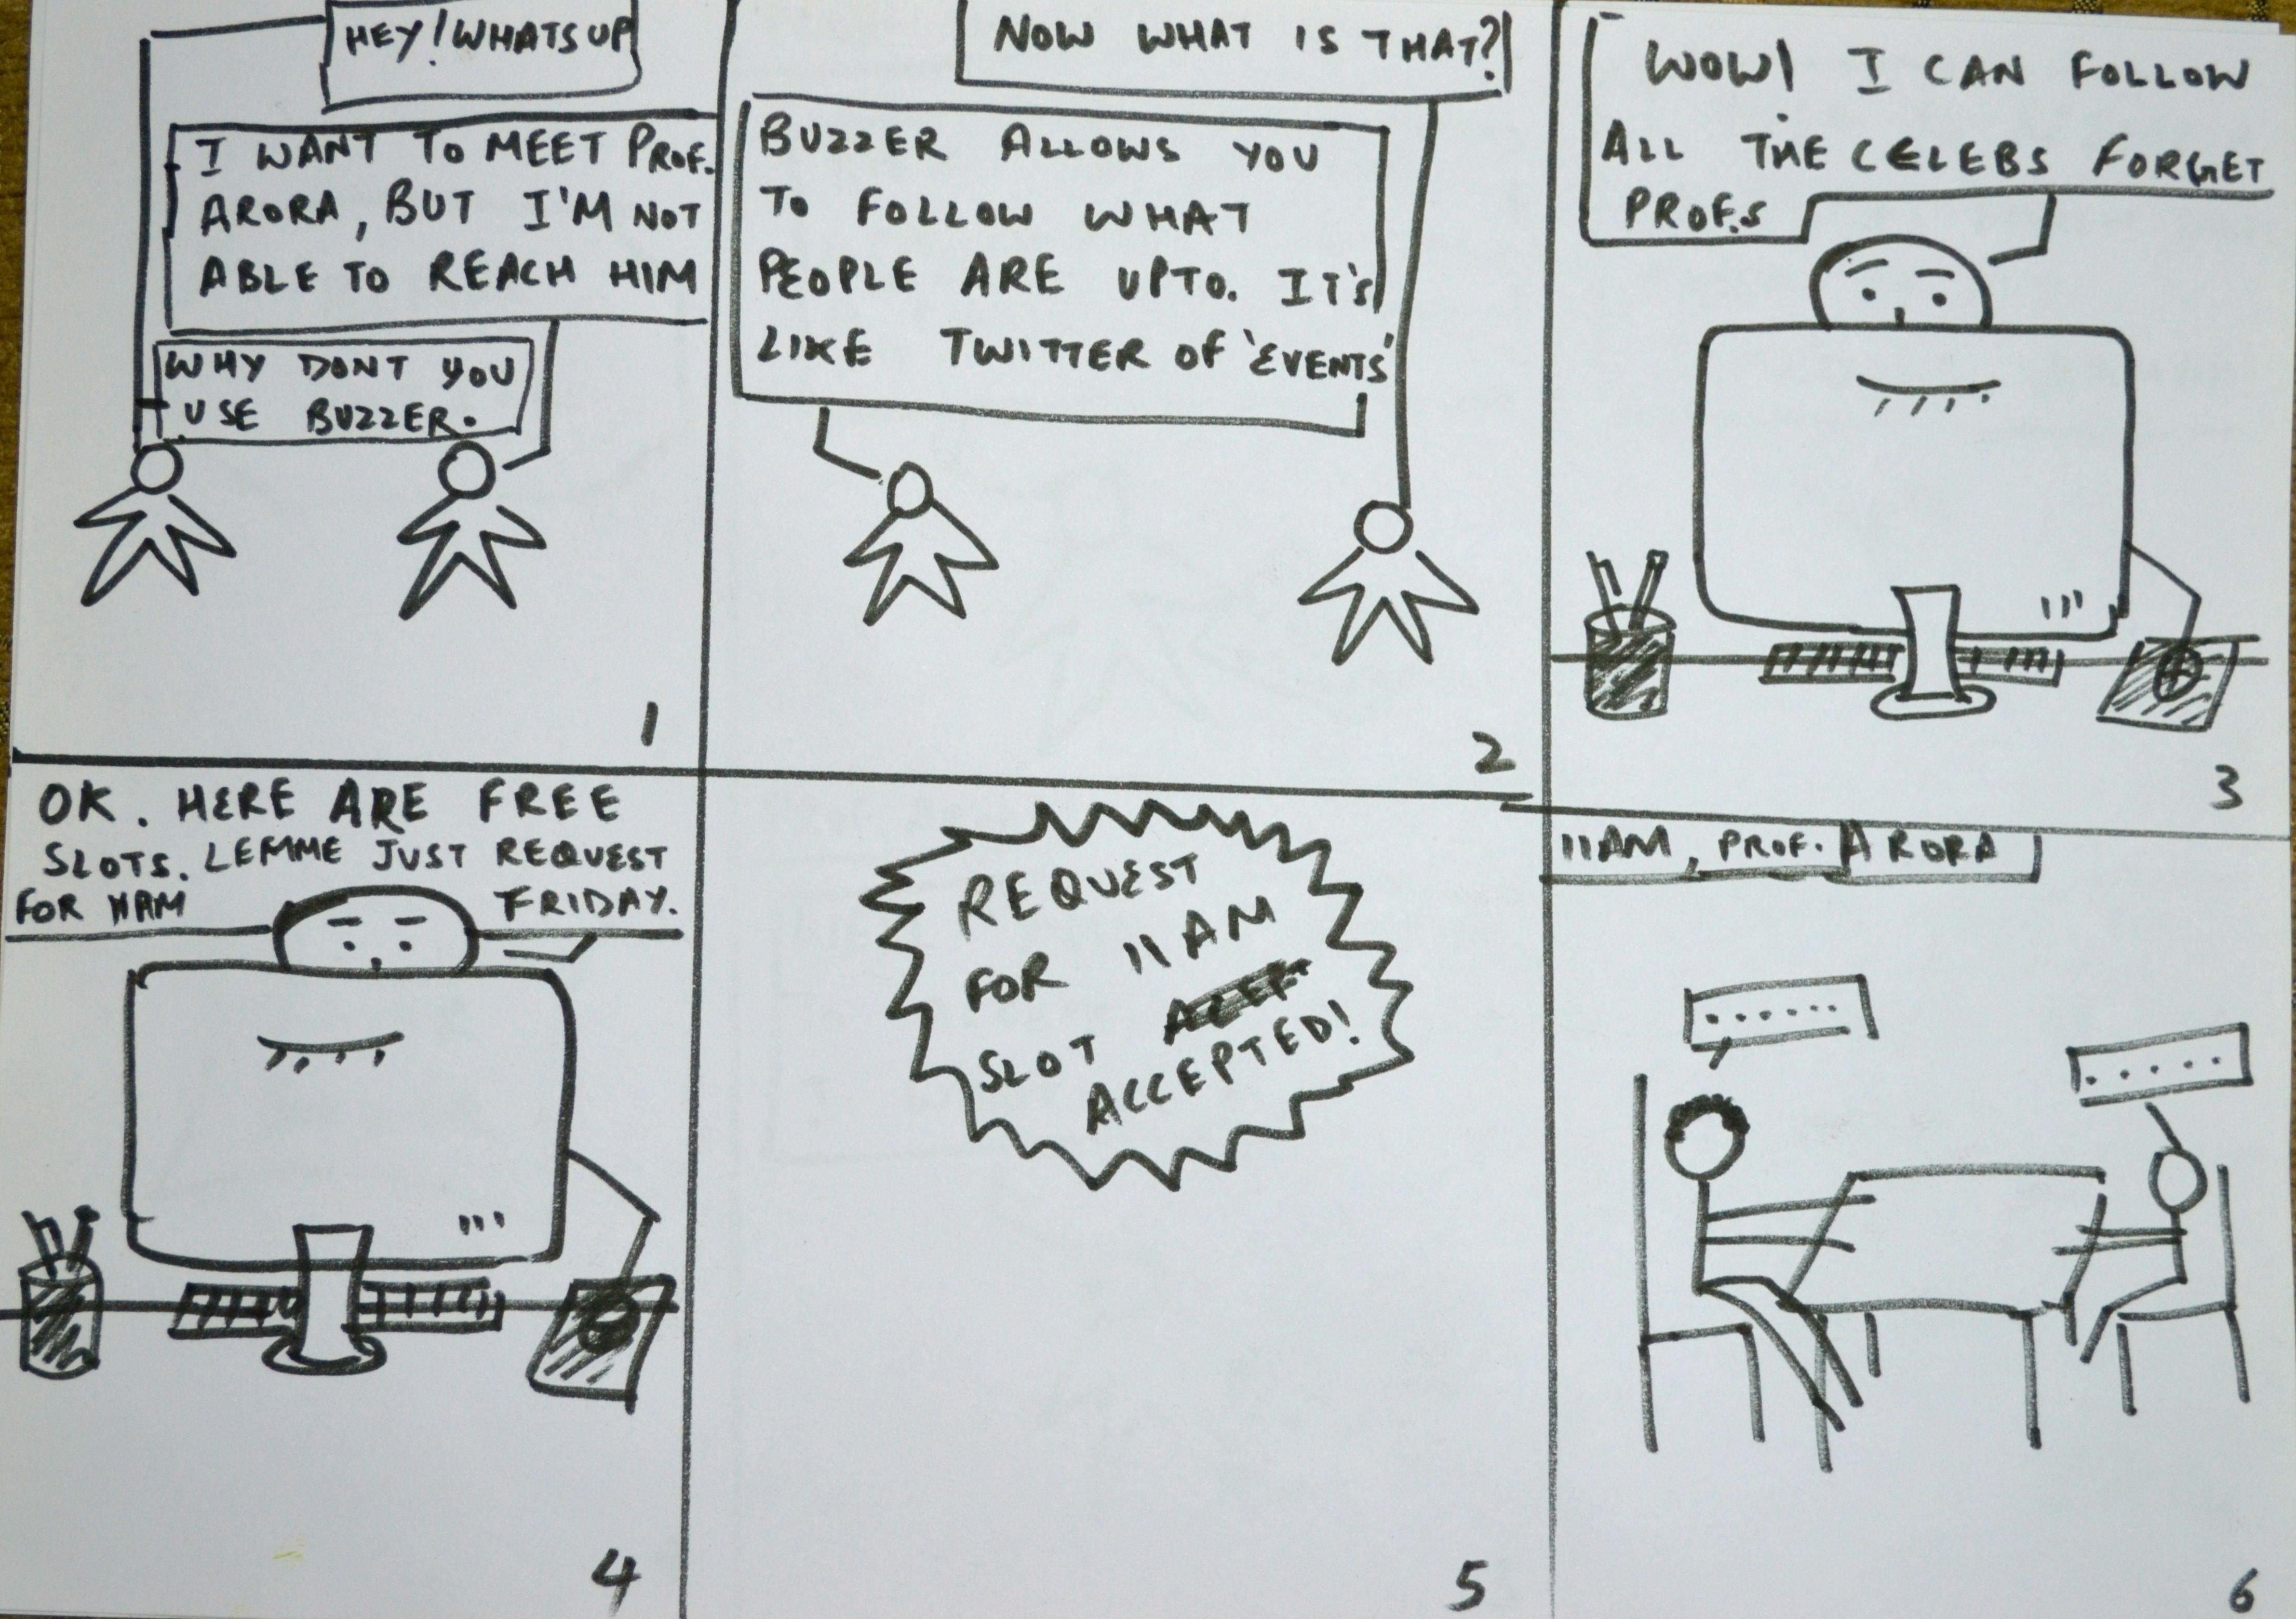 HEY! WHATSUP
I WANT TO MEET PROF.
ARORA, BUT I'M NOT
ABLE TO REACH HIM
WHY DONT YOU
USE BUZZER.
1
NOW WHAT IS THAT?
BUZZER ALLOWS YOU
TO FOLLOW WHAT
PEOPLE ARE UPTO. IT'S
LIKE TWITTER OF 'EVENTS'
2
WOW! I CAN FOLLOW
ALL THE CELEBS FORGET
PROF.S
3
OK. HERE ARE FREE
SLOTS. LEMME JUST REQUEST
FOR 11AM FRIDAY.
4
REQUEST
FOR 11AM
SLOT
ACCEPTED!
5
11AM, PROF. ARORA
6